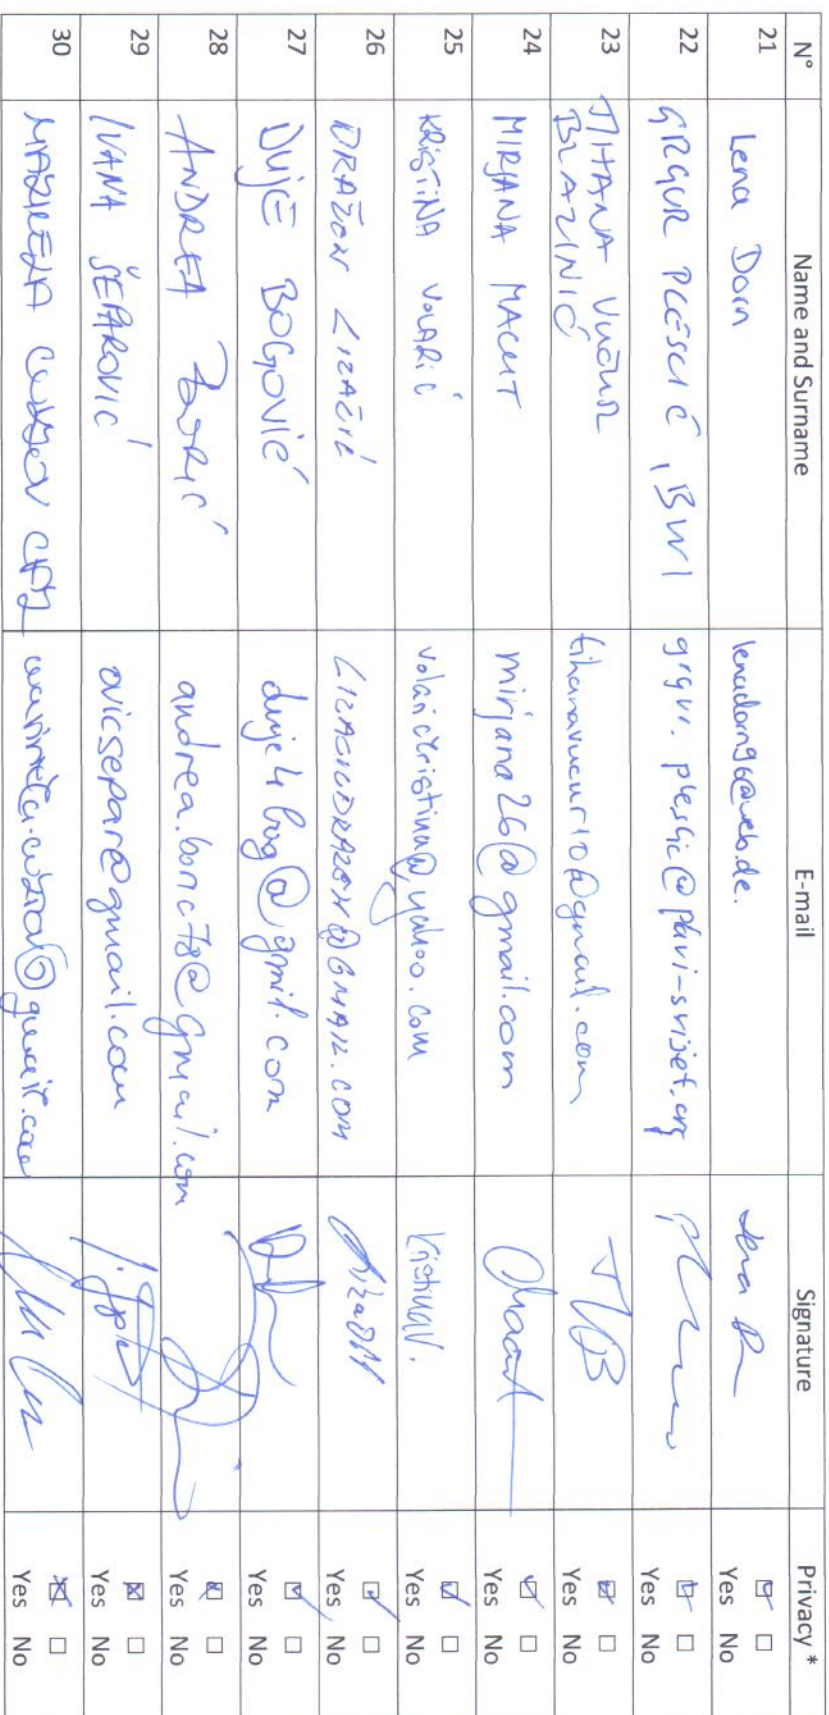 N° Name and Surname E-mail Signature Privacy *
21 Lena Dorn lenadorn96@web.de. Lena D
Yes No
22 GRGUR PLEŠLIĆ, BWI grgur.pleslic@plavi-svijet.org
Yes No
23 TIHANA VUČUR
BLAZINIĆ tihanavucur10@gmail.com TVB
Yes No
24 MIRJANA MACUT mirjana26@gmail.com Macut
Yes No
25 KRISTINA VOLARIĆ volarickristina@yahoo.com Kristina V.
Yes No
26 DRAŽEN LIZAČIĆ LIZACICDRAZEN@GMAIL.COM
Yes No
27 DUJE BOGOVIĆ duje4bog@gmil.com
Yes No
28 ANDREA BORIĆ andrea.boric78@gmail.com
Yes No
29 IVANA ŠEPAROVIĆ ovicsepar@gmail.com
Yes No
30
Yes No